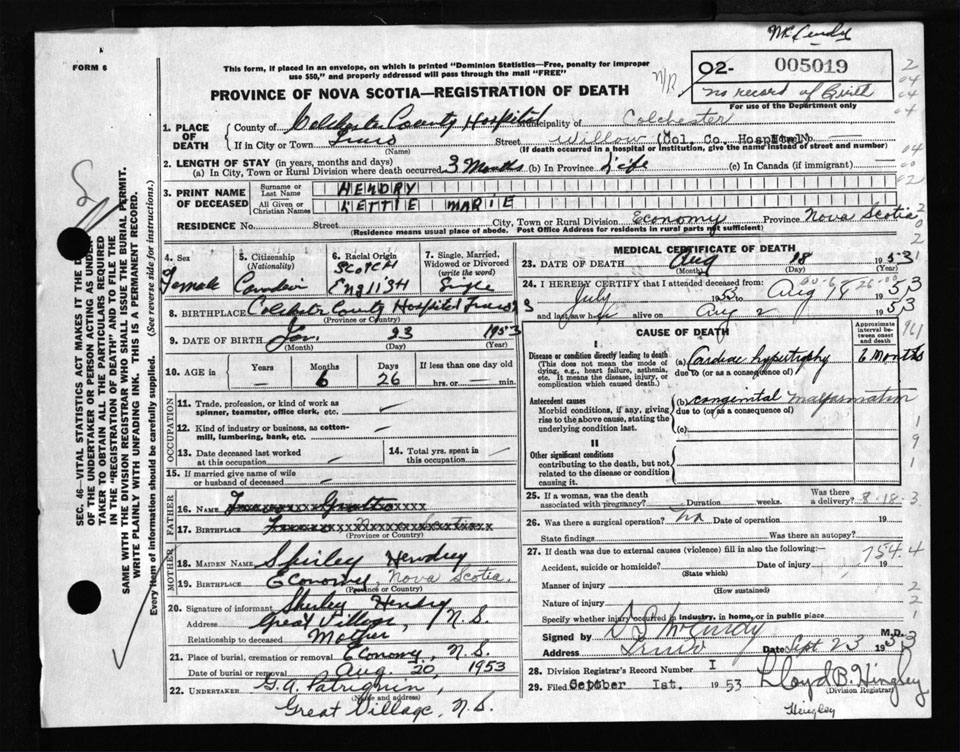 McCurdy
FORM 6
This form, if placed in an envelope, on which is printed "Dominion Statistics—Free, penalty for improper
use $50," and properly addressed will pass through the mail "FREE"
PROVINCE OF NOVA SCOTIA—REGISTRATION OF DEATH
02- 005019
no record of Birth
For use of the Department only
1. PLACE OF DEATH
County of Colchester County Hospital Municipality of Colchester
If in City or Town Truro (Name) Street Willow (Col. Co. Hospital) No. —
(If death occurred in a hospital or institution, give the name instead of street and number)
2. LENGTH OF STAY (in years, months and days)
(a) In City, Town or Rural Division where death occurred 3 Months (b) In Province Life (c) In Canada (if immigrant) —
3. PRINT NAME OF DECEASED
Surname or Last Name HENDRY
All Given or Christian Names LETTIE MARIE
RESIDENCE No. Street City, Town or Rural Division Economy Province Nova Scotia
(Residence means usual place of abode. Post Office Address for residents in rural parts not sufficient)
4. Sex
Female
5. Citizenship
(Nationality)
Canadian
6. Racial Origin
SCOTCH
ENGLISH
7. Single, Married,
Widowed or Divorced
(write the word)
Single
8. BIRTHPLACE Colchester County Hospital Truro N S
(Province or Country)
9. DATE OF BIRTH Jan. 23 1953
(Month) (Day) (Year)
10. AGE in
Years Months Days If less than one day old
— 6 26 hrs. or — min.
OCCUPATION
11. Trade, profession, or kind of work as
spinner, teamster, office clerk, etc.
12. Kind of industry or business, as cotton-
mill, lumbering, bank, etc. —
13. Date deceased last worked
at this occupation —
14. Total yrs. spent in
this occupation —
15. If married give name of wife
or husband of deceased —
FATHER
16. NAME
17. BIRTHPLACE
(Province or Country)
MOTHER
18. MAIDEN NAME Shirley Hendry
19. BIRTHPLACE Economy, Nova Scotia.
(Province or Country)
20. Signature of informant Shirley Hendry
Address Great Village, N.S.
Relationship to deceased Mother
21. Place of burial, cremation or removal Economy, N.S.
Date of burial or removal Aug 20, 1953
22. UNDERTAKER G. A. Patriquin,
(Name and address)
Great Village, N.S.
MEDICAL CERTIFICATE OF DEATH
23. DATE OF DEATH Aug 18 1953
(Month) (Day) (Year)
24. I HEREBY CERTIFY that I attended deceased from:
July 1953 to Aug 18 1953
and last saw her alive on Aug 2 1953
CAUSE OF DEATH
Approximate
interval between
onset
and death
I
Disease or condition directly leading to death
(This does not mean the mode of
dying, e.g., heart failure, asthenia,
etc. It means the disease, injury, or
complication which caused death.)
(a) Cardiac hypertrophy 6 Months
due to (or as a consequence of)
Antecedent causes
Morbid conditions, if any, giving
rise to the above cause, stating the
underlying condition last.
(b) congenital malformation
due to (or as a consequence of)
(c)
II
Other significant conditions
contributing to the death, but not
related to the disease or condition
causing it.
25. If a woman, was the death
associated with pregnancy? Duration weeks. Was there
a delivery? 8-18-3
26. Was there a surgical operation? No Date of operation 19
State findings Was there an autopsy?
27. If death was due to external causes (violence) fill in also the following:—
754.4
Accident, suicide or homicide? Date of injury 19
(State which)
Manner of injury
(How sustained)
Nature of injury
Specify whether injury occurred in industry, in home, or in public place
Signed by S D McCurdy M.D.
Address Truro Date Sept 23 1953
28. Division Registrar's Record Number I
29. Filed October 1st. 1953 Lloyd B. Hingley
(Division Registrar)
Hingley
SEC. 46—VITAL STATISTICS ACT MAKES IT THE D
OF THE UNDERTAKER OR PERSON ACTING AS UNDER
TAKER TO OBTAIN ALL THE PARTICULARS REQUIRED
IN THE "REGISTRATION OF DEATH" AND TO FILE THE
SAME WITH THE DIVISION REGISTRAR WHO SHALL ISSUE THE BURIAL PERMIT.
WRITE PLAINLY WITH UNFADING INK. THIS IS A PERMANENT RECORD.
Every item of information should be carefully supplied. (See reverse side for instructions.)